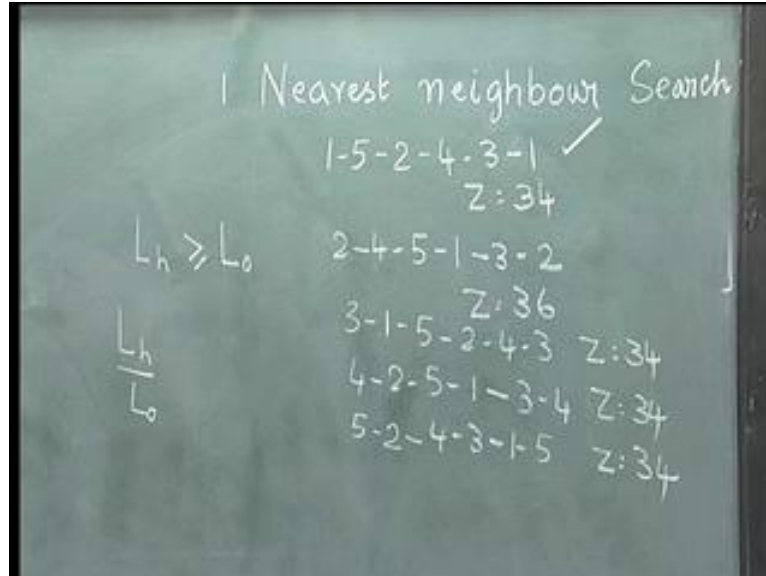 1 Nearest neighbour Search
1-5-2-4-3-1 ✓
Z:34
L_h ≥ L_0
2-4-5-1-3-2
Z:36
L_h
L_0
3-1-5-2-4-3 Z:34
4-2-5-1-3-4 Z:34
5-2-4-3-1-5 Z:34